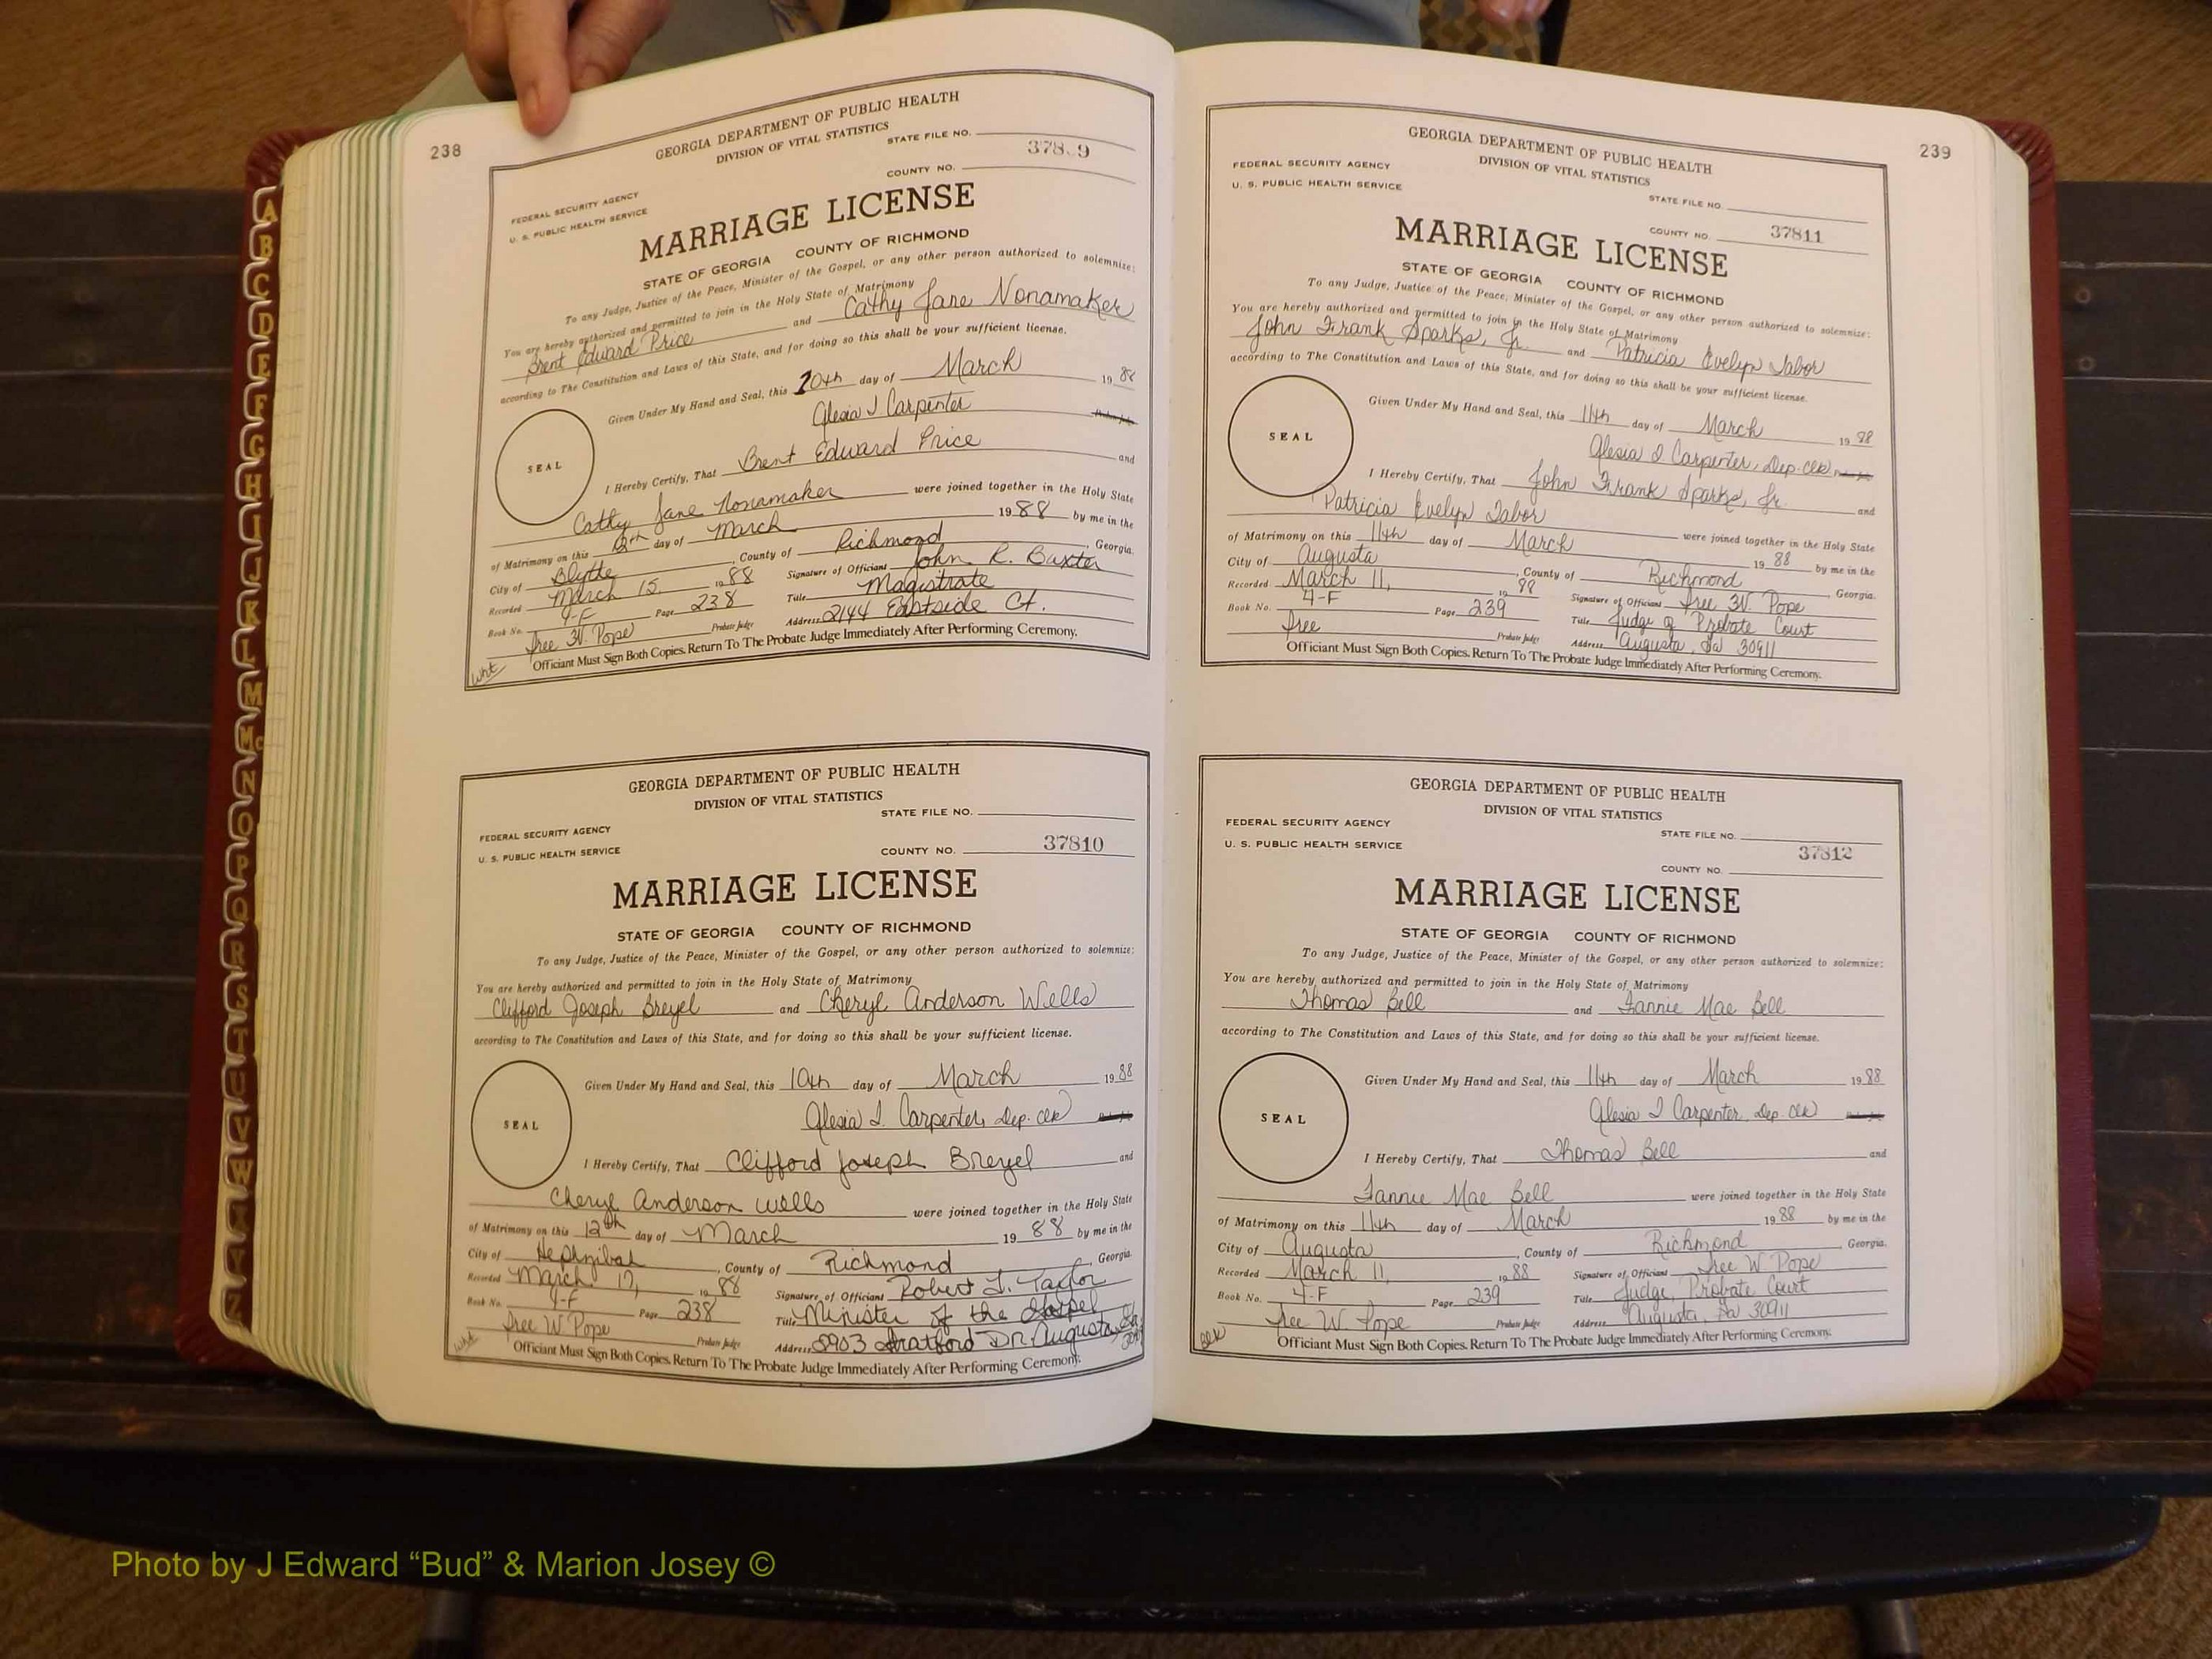 238
GEORGIA DEPARTMENT OF PUBLIC HEALTH
DIVISION OF VITAL STATISTICS
STATE FILE NO.
FEDERAL SECURITY AGENCY
U. S. PUBLIC HEALTH SERVICE
COUNTY NO.
MARRIAGE LICENSE
STATE OF GEORGIA COUNTY OF RICHMOND
To any Judge, Justice of the Peace, Minister of the Gospel, or any other person authorized to solemnize:
You are hereby authorized and permitted to join in the Holy State of Matrimony
Brent Edward Price and Cathy Jane Nonamaker
according to The Constitution and Laws of this State, and for doing so this shall be your sufficient license.
Given Under My Hand and Seal, this day of March 19
Alesia I Carpenter
SEAL
I Hereby Certify, That Brent Edward Price and
Cathy Jane Nonamaker were joined together in the Holy State
of Matrimony on this day of March 1988 by me in the
City of Blythe, County of Richmond, Georgia.
Recorded March 15, 1988 Signature of Officiant John R. Baxter
Book No. 4-F Page 238 Title Magistrate
Tree W. Pope Probate Judge Address 2144 Eastside Ct.
Officiant Must Sign Both Copies. Return To The Probate Judge Immediately After Performing Ceremony.
wht
GEORGIA DEPARTMENT OF PUBLIC HEALTH
DIVISION OF VITAL STATISTICS
STATE FILE NO.
FEDERAL SECURITY AGENCY
U. S. PUBLIC HEALTH SERVICE
COUNTY NO. 37810
MARRIAGE LICENSE
STATE OF GEORGIA COUNTY OF RICHMOND
To any Judge, Justice of the Peace, Minister of the Gospel, or any other person authorized to solemnize:
You are hereby authorized and permitted to join in the Holy State of Matrimony
Clifford Joseph Breyel and Cheryl Anderson Wells
according to The Constitution and Laws of this State, and for doing so this shall be your sufficient license.
Given Under My Hand and Seal, this 10th day of March 1988
Alesia I. Carpenter, Dep. Clk
SEAL
I Hereby Certify, That Clifford Joseph Breyel and
Cheryl Anderson Wells were joined together in the Holy State
of Matrimony on this 12th day of March 1988 by me in the
City of Hephzibah, County of Richmond, Georgia.
Recorded March 17, 1988 Signature of Officiant Robert L. Taylor
Book No. 4-F Page 238 Title Minister of the Gospel
Tree W Pope Probate Judge Address Stratford DR. Augusta,
Officiant Must Sign Both Copies. Return To The Probate Judge Immediately After Performing Ceremony.
wht
239
GEORGIA DEPARTMENT OF PUBLIC HEALTH
DIVISION OF VITAL STATISTICS
FEDERAL SECURITY AGENCY
U. S. PUBLIC HEALTH SERVICE
STATE FILE NO.
COUNTY NO. 37811
MARRIAGE LICENSE
STATE OF GEORGIA COUNTY OF RICHMOND
To any Judge, Justice of the Peace, Minister of the Gospel, or any other person authorized to solemnize:
You are hereby authorized and permitted to join in the Holy State of Matrimony
John Frank Sparks, Jr. and Patricia Evelyn Tabor
according to The Constitution and Laws of this State, and for doing so this shall be your sufficient license.
Given Under My Hand and Seal, this 11th day of March 1988
Alesia I Carpenter, Dep. Clk
SEAL
I Hereby Certify, That John Frank Sparks, Jr. and
Patricia Evelyn Tabor were joined together in the Holy State
of Matrimony on this 11th day of March 1988 by me in the
City of Augusta, County of Richmond, Georgia.
Recorded March 11, 1988 Signature of Officiant Tree W. Pope
Book No. 4-F Page 239 Title Judge of Probate Court
Tree Probate Judge Address Augusta, Ga 30911
Officiant Must Sign Both Copies. Return To The Probate Judge Immediately After Performing Ceremony.
GEORGIA DEPARTMENT OF PUBLIC HEALTH
DIVISION OF VITAL STATISTICS
FEDERAL SECURITY AGENCY
STATE FILE NO.
U. S. PUBLIC HEALTH SERVICE
37812
COUNTY NO.
MARRIAGE LICENSE
STATE OF GEORGIA COUNTY OF RICHMOND
To any Judge, Justice of the Peace, Minister of the Gospel, or any other person authorized to solemnize:
You are hereby authorized and permitted to join in the Holy State of Matrimony
Thomas Bell and Fannie Mae Bell
according to The Constitution and Laws of this State, and for doing so this shall be your sufficient license.
Given Under My Hand and Seal, this 11th day of March 1988
Alesia I Carpenter, Dep. Clk
SEAL
I Hereby Certify, That Thomas Bell and
Fannie Mae Bell were joined together in the Holy State
of Matrimony on this 11th day of March 1988 by me in the
City of Augusta, County of Richmond, Georgia.
Recorded March 11, 1988 Signature of Officiant Tree W Pope
Book No. 4-F Page 239 Title Judge, Probate Court
Tree W. Pope Probate Judge Address Augusta, Ga 30911
Officiant Must Sign Both Copies. Return To The Probate Judge Immediately After Performing Ceremony.
blk
A
B
C
D
E
F
G
H
I
J
K
L
M
Mc
N
O
P
Q
R
S
T
U
V
W
X
Y
Z
Photo by J Edward “Bud” & Marion Josey ©